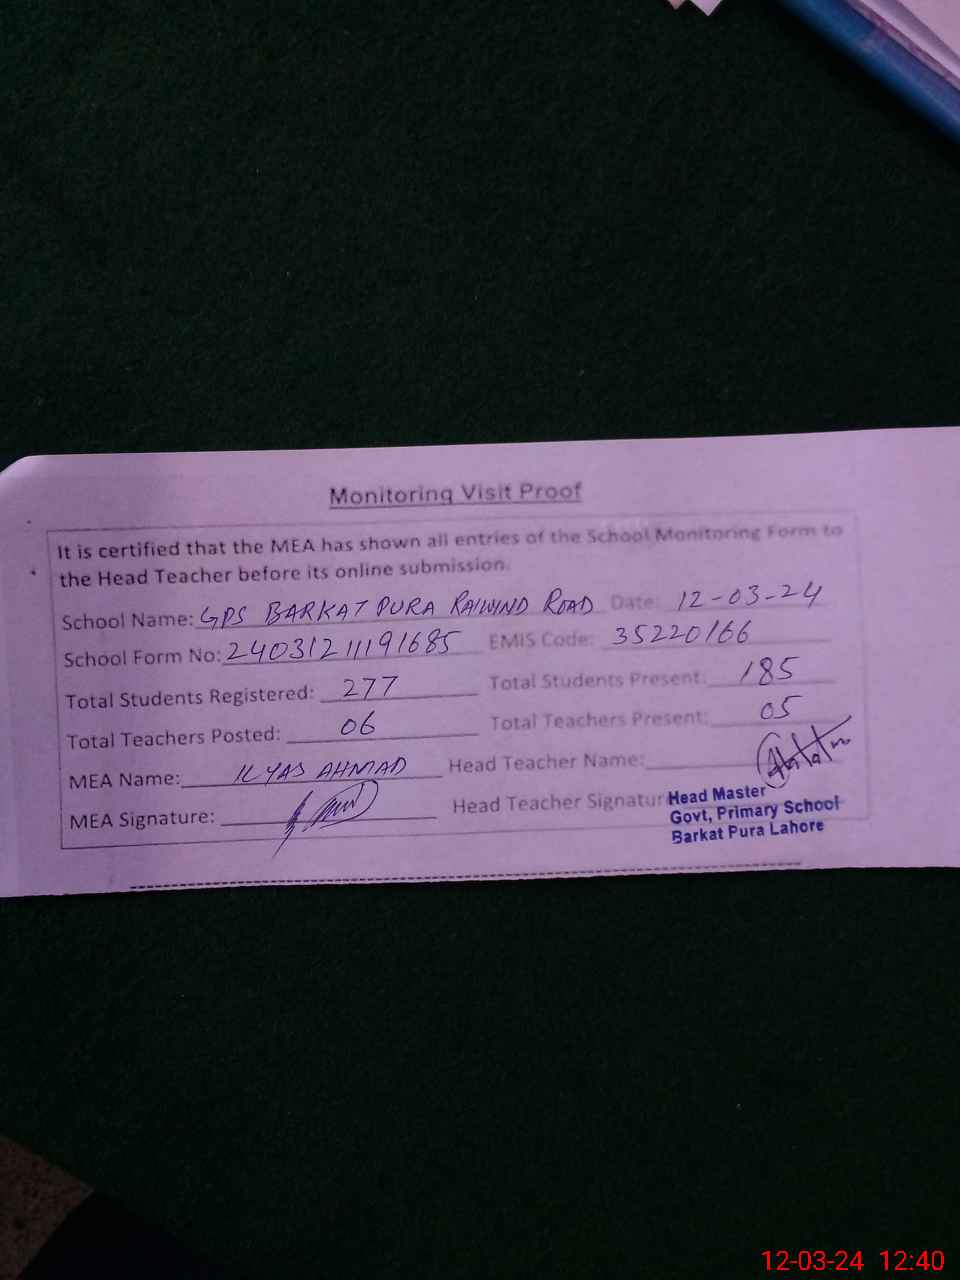 Monitoring Visit Proof
It is certified that the MEA has shown all entries of the School Monitoring Form to
the Head Teacher before its online submission.
School Name: GPS BARKAT PURA RAIWIND ROAD Date: 12-03-24
School Form No: 24031211191685 EMIS Code: 35220166
Total Students Registered: 277 Total Students Present: 185
Total Teachers Posted: 06 Total Teachers Present: 05
MEA Name: ILYAS AHMAD Head Teacher Name:
MEA Signature: Head Teacher Signatur
Head Master
Govt, Primary School
Barkat Pura Lahore
12-03-24 12:40